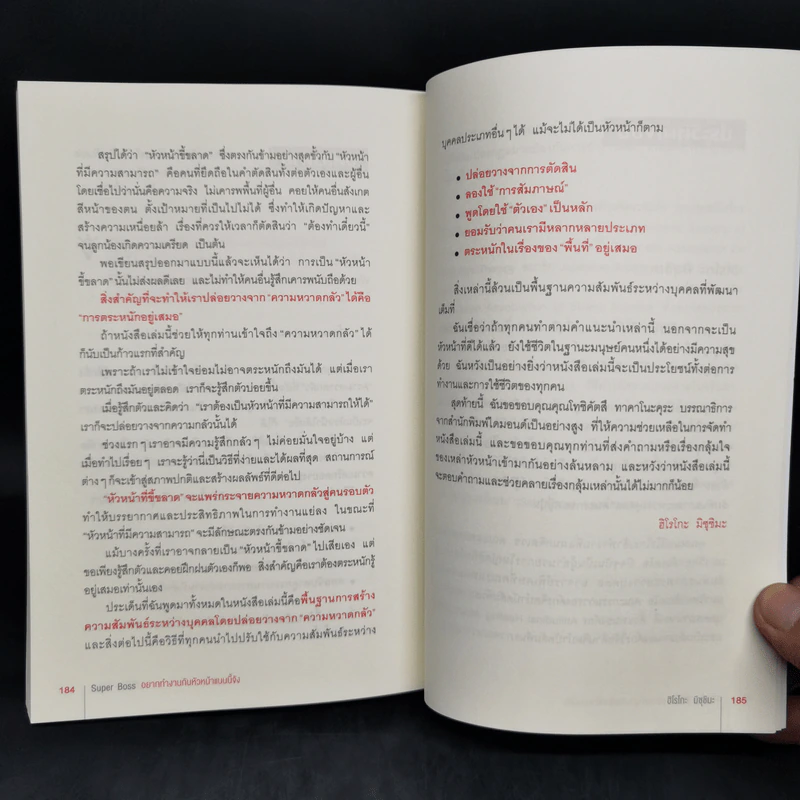 สรุปได้ว่า "หัวหน้าขี้ขลาด" ซึ่งตรงกันข้ามอย่างสุดขั้วกับ "หัวหน้า
ที่มีความสามารถ" คือคนที่ยึดถือในคำตัดสินทั้งต่อตัวเองและผู้อื่น
โดยเชื่อไปว่านั่นคือความจริง ไม่เคารพพื้นที่ผู้อื่น คอยให้คนอื่นสังเกต
สีหน้าของตน ตั้งเป้าหมายที่เป็นไปไม่ได้ ซึ่งทำให้เกิดปัญหาและ
สร้างความเหนื่อยล้า เรื่องที่ควรให้เวลาก็ตัดสินว่า "ต้องทำเดี๋ยวนี้"
จนลูกน้องเกิดความเครียด เป็นต้น
พอเขียนสรุปออกมาแบบนี้แล้วจะเห็นได้ว่า การเป็น "หัวหน้า
ขี้ขลาด" นั้นไม่ส่งผลดีเลย และไม่ทำให้คนอื่นรู้สึกเคารพนับถือด้วย
สิ่งสำคัญที่จะทำให้เราปล่อยวางจาก "ความหวาดกลัว" ได้คือ
"การตระหนักอยู่เสมอ"
ถ้าหนังสือเล่มนี้ช่วยให้ทุกท่านเข้าใจถึง "ความหวาดกลัว" ได้
ก็นับเป็นก้าวแรกที่สำคัญ
เพราะถ้าเราไม่เข้าใจย่อมไม่อาจตระหนักถึงมันได้ แต่เมื่อเรา
ตระหนักถึงมันอยู่ตลอด เราก็จะรู้ตัวบ่อยขึ้น
เมื่อรู้สึกตัวและคิดว่า "เราต้องเป็นหัวหน้าที่มีความสามารถให้ได้"
เราก็จะปล่อยวางจากความกลัวนั้นได้
ช่วงแรก ๆ เราอาจมีความรู้สึกกลัว ๆ ไม่ค่อยมั่นใจอยู่บ้าง แต่
เมื่อทำไปเรื่อย ๆ เราจะรู้ว่านี่เป็นวิธีที่ง่ายและได้ผลที่สุด สถานการณ์
ต่าง ๆ ก็จะเข้าสู่สภาพปกติและสร้างผลลัพธ์ที่ดีต่อไป
"หัวหน้าที่ขี้ขลาด" จะแพร่กระจายความหวาดกลัวสู่คนรอบตัว
ทำให้บรรยากาศและประสิทธิภาพในการทำงานแย่ลง ในขณะที่
"หัวหน้าที่มีความสามารถ" จะมีลักษณะตรงกันข้ามอย่างชัดเจน
แม้บางครั้งที่เราอาจกลายเป็น "หัวหน้าขี้ขลาด" ไปเสียเอง แต่
ขอเพียงรู้สึกตัวและคอยฝึกฝนตัวเองก็พอ สิ่งสำคัญคือเราต้องตระหนักรู้
อยู่เสมอเท่านั้นเอง
ประเด็นที่ฉันพูดมาทั้งหมดในหนังสือเล่มนี้คือพื้นฐานการสร้าง
ความสัมพันธ์ระหว่างบุคคลโดยปล่อยวางจาก "ความหวาดกลัว"
และสิ่งต่อไปนี้คือวิธีที่ทุกคนนำไปปรับใช้กับความสัมพันธ์ระหว่าง
184 Super Boss อยากทำงานกับหัวหน้าแบบนี้จัง
บุคคลประเภทอื่น ๆ ได้ แม้จะไม่ได้เป็นหัวหน้าก็ตาม
• ปล่อยวางจากการตัดสิน
• ลองใช้ "การสัมภาษณ์"
• พูดโดยใช้ "ตัวเอง" เป็นหลัก
• ยอมรับว่าคนเรามีหลากหลายประเภท
• ตระหนักในเรื่องของ "พื้นที่" อยู่เสมอ
สิ่งเหล่านี้ล้วนเป็นพื้นฐานความสัมพันธ์ระหว่างบุคคลที่พัฒนา
เต็มที่
ฉันเชื่อว่าถ้าทุกคนทำตามคำแนะนำเหล่านี้ นอกจากจะเป็น
หัวหน้าที่ดีได้แล้ว ยังใช้ชีวิตในฐานะมนุษย์คนหนึ่งได้อย่างมีความสุข
ด้วย ฉันหวังเป็นอย่างยิ่งว่าหนังสือเล่มนี้จะเป็นประโยชน์ทั้งต่อการ
ทำงานและการใช้ชีวิตของทุกคน
สุดท้ายนี้ ฉันขอขอบคุณคุณโทชิคัตสึ ทาคาโนะคุระ บรรณาธิการ
จากสำนักพิมพ์ไดมอนด์เป็นอย่างสูง ที่ให้ความช่วยเหลือในการจัดทำ
หนังสือเล่มนี้ และขอขอบคุณทุกท่านที่ส่งคำถามหรือเรื่องกลุ้มใจ
ของเหล่าหัวหน้าเข้ามากันอย่างล้นหลาม และหวังว่าหนังสือเล่มนี้
จะตอบคำถามและช่วยคลายเรื่องกลุ้มเหล่านั้นได้ไม่มากก็น้อย
ฮิโรโกะ มิซุชิมะ
ฮิโรโกะ มิซุชิมะ 185